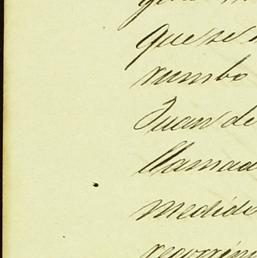 que se
rumbo
Juan de
llamad
medid